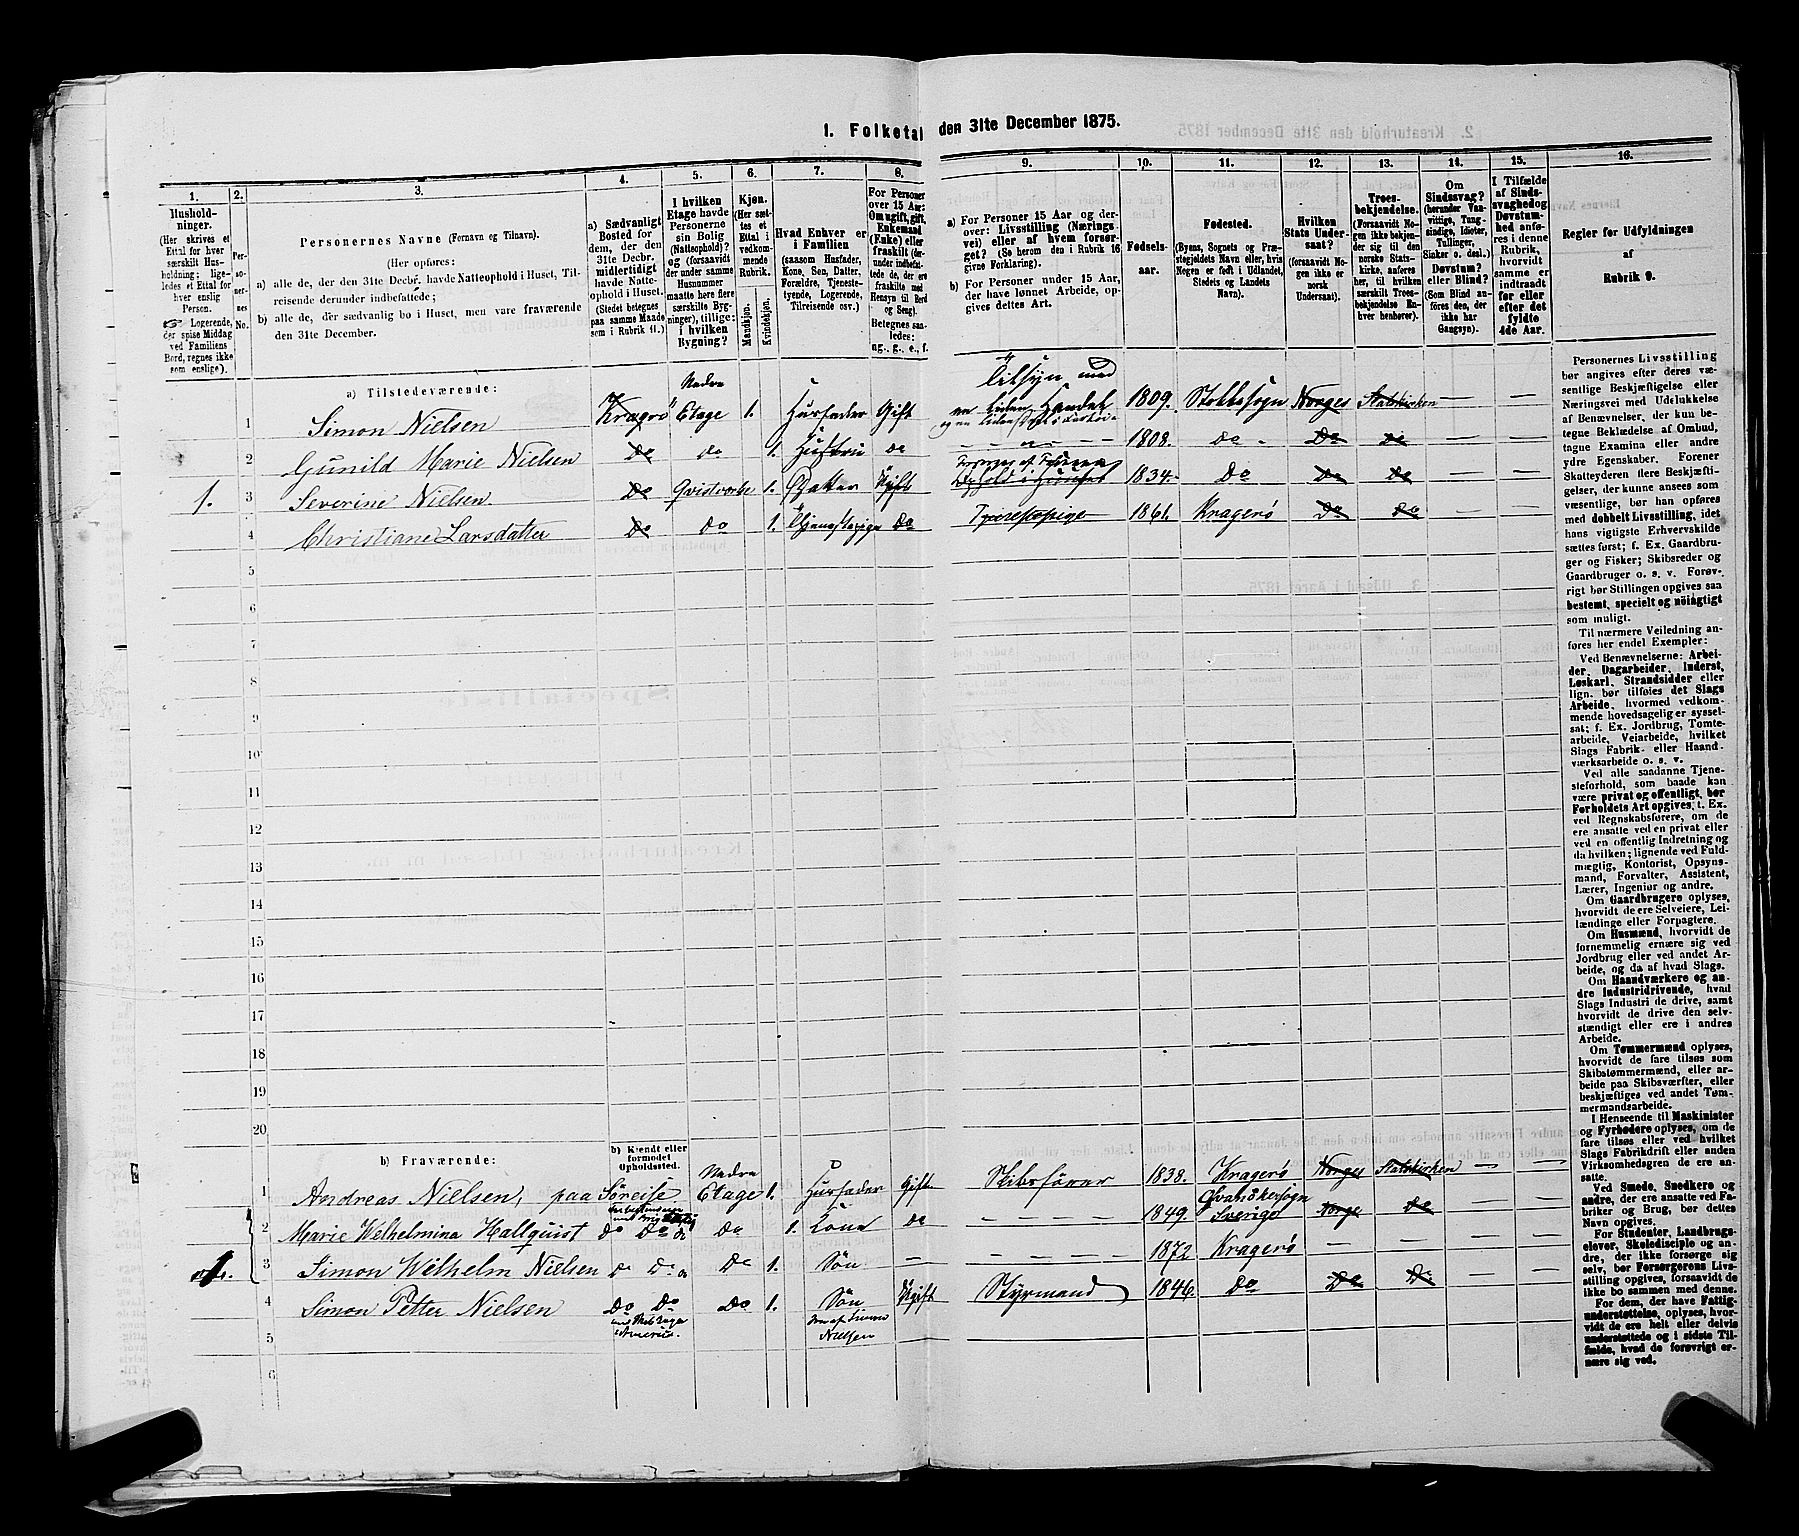 1. Folketal den 31te December 1875.
1. 2. 3. 4. 5. 6. 7. 8. 9. 10. 11. 12. 13. 14. 15. 16.
Hushold-
ninger.
(Her skrives et
Ettal for hver
særskilt Hus-
holdning; lige-
ledes et Ettal for
hver enslig
Person.
Logerende,
der spise Middag
ved Familiens
Bord, regnes ikke
som enslige).
Per-
so-
ner-
nes
No.
Personernes Navne (Fornavn og Tilnavn).
(Her opføres:
a) alle de, der den 31te Decbr. havde Natteophold i Huset, Til-
reisende derunder indbefattede;
b) alle de, der sædvanlig bo i Huset, men vare fraværende
den 31te December.
a) Sædvanligt
Bosted for
dem, der den
31te Decbr.
midlertidigt
havde Natte-
ophold i Huset.
(Stedet betegnes
paa samme Maade
som i Rubrik 11.)
I hvilken
Etage havde
Personerne
sin Bolig
(Natteophold)?
og (forsaavidt
der under samme
Husnummer
maatte høre flere
særskilte Byg-
ninger), tillige:
i hvilken
Bygning?
Kjøn.
(Her sæt-
tes et
Ettal i
vedkom-
mende
Rubrik.)
Mandkjøn.
Kvindekjøn.
Hvad Enhver er
i Familien
(saasom Husfader,
Kone, Søn, Datter,
Forældre, Tjeneste-
tyende, Logerende,
Tilreisende osv.)
For Personer
over 15 Aar:
Om ugift, gift,
Enkemand
(Enke) eller
fraskilt (der-
under indbefat-
tede de, der ere
fraskilte med
Hensyn til Bord
og Seng).
Betegnes saa-
ledes:
ug., g., e., f.
a) For Personer 15 Aar og der-
over: Livsstilling (Nærings-
vei) eller af hvem forsør-
get? (Se herom den i Rubrik 16
givne Forklaring).
b) For Personer under 15 Aar,
der have lønnet Arbeide, op-
gives dettes Art.
Fødsels-
aar.
Fødested.
(Byens, Sognets og Præ-
stegjeldets Navn eller, hvis
Nogen er født i Udlandet,
Stedets og Landets
Navn).
Hvilken
Stats Under-
saat?
(forsaavidt No-
gen ikke er
norsk
Undersaat).
Troes-
bekjendelse.
(Forsaavidt No-
gen ikke bekjen-
der sig til den
norske Stats-
kirke, anføres
her, til hvilken
særskilt Troes-
bekjendelse En-
hver henhører).
Om
Sindssvag?
(herunder Van-
vittige, Tung-
sindige, Idioter,
Tullinger,
Sinker o. desl.)
Døvstum?
eller Blind?
(Som Blind an-
føres den, der
ikke har
Gangsyn).
I Tilfælde
af Sinds-
svaghed og
Døvstum-
hed anfø-
res i denne
Rubrik,
hvorvidt
samme er
indtraadt
før eller
efter det
fyldte
4de Aar.
Regler for Udfyldningen
af
Rubrik 9.
a) Tilstedeværende:
1 Simon Nielsen Kragerø Nedre Etage 1. Husfader Gift Tilsyn med en liden Handel 1809. Norges Statskirken — —
2 Gunild Marie Nielsen Do do 1. Hustru do 1808. do Do do — —
1. 3 Severine Nielsen. Do 1. Datter Ugift 1834. Do Do Do — —
4 Christiane Larsdatter Do Do 1. Do 1861. Kragerø Do Do — —
5
6
7
8
9
10
11
12
13
14
15
16
17
18
19
20
b) Fraværende:
b) Kjendt eller
formodet
Opholdssted.
1 Andreas Nielsen, paa Söreise. Nedre Etage 1. Husfader Gift Skibsförer 1838. Kragerö Norges Statskirken — —
2 Marie Welhelmina Hallquist Do Do Do 1. Kone do 1849. Sverige Norge Do — —
1. 3 Simon Wilhelm Nielsen Do Do Do 1. Sön — 1872 Kragerö — —
4 Simon Petter Nielsen Do Do Do 1. Sön Nielsen Ugift Styrmand 1846. Do Do Do — —
5
6
Personernes Livsstilling
bør angives efter deres væ-
sentlige Beskjæftigelse eller
Næringsvei med Udelukkelse
af Benævnelser, der kun be-
tegne Beklædelse af Ombud,
tagne Examina eller andre
ydre Egenskaber. Forener
Skatteyderen flere Beskjæfti-
gelser, der kunne ansees som
væsentlige, bør han opføres
med dobbelt Livsstilling, idet
hans vigtigste Erhvervskilde
sættes først; f. Ex. Gaardbru-
ger og Fisker; Skibsreder og
Gaardbruger o. s. v. Forøv-
rigt bør Stillingen opgives saa
bestemt, specielt og nöiagtigt
som muligt.
Til nærmere Veiledning an-
føres her endel Exempler:
Ved Benævnelserne: Arbei-
der, Dagarbeider, Inderst,
Løskarl, Strandsidder eller
lign. bør tilføies det Slags
Arbeide, hvormed vedkom-
mende hovedsagelig er syssel-
sat; f. Ex. Jordbrug, Tømte-
arbeide, Veiarbeide, hvilket
Slags Fabrik- eller Haand-
værksarbeide o. s. v.
Ved alle saadanne Tjene-
steforhold, som baade kan
være privat og offentligt, bør
Forholdets Art opgives, t. Ex.
ved Regnskabsførere, om de
ere ansatte ved en privat eller
ved en offentlig Indretning og
da hvilken; lignende ved Fuld-
mægtig, Kontorist, Opsyns-
mand, Forvalter, Assistent,
Lærer, Ingeniør og andre.
Om Gaardbrugere oplyses,
hvorvidt de ere Selveiere, Lei-
lændinge eller Forpagtere.
Om Husmænd, hvorvidt de
fornemmelig ernære sig ved
Jordbrug eller ved andet Ar-
beide, og da af hvad Slags.
Om Haandværkere og an-
dre Industridrivende, hvad
Slags Industri de drive, samt
hvorvidt de drive den selv-
stændigt eller ere i andres
Arbeide.
Om Tømmermænd oplyses,
hvorvidt de fare tilsøs som
Skibstømmermænd, eller ar-
beide paa Skibsværfter, eller
beskjæftiges ved andet Tøm-
mermandsarbeide.
I Henseende til Maskinister
og Fyrbødere oplyses, om de
fare tilsøs eller ved hvilket
Slags Fabrikdrift eller anden
Virksomhedsgren de ere an-
satte.
Ved Smede, Snedkere og
andre, der ere ansatte ved Fa-
briker og Brug, bør dettes
Navn opgives.
For Studenter, Landbrugs-
elever, Skoledisciple og an-
dre, der ikke forsørge sig
selv, bør Forsørgerens Livs-
stilling opgives, forsaavidt de
ikke bo sammen med denne.
For dem, der have Fattig-
understøttelse, oplyses, hvor-
vidt de ere helt eller delvis
understøttede og i sidste Til-
fælde, hvad de forøvrigt er-
nære sig ved.